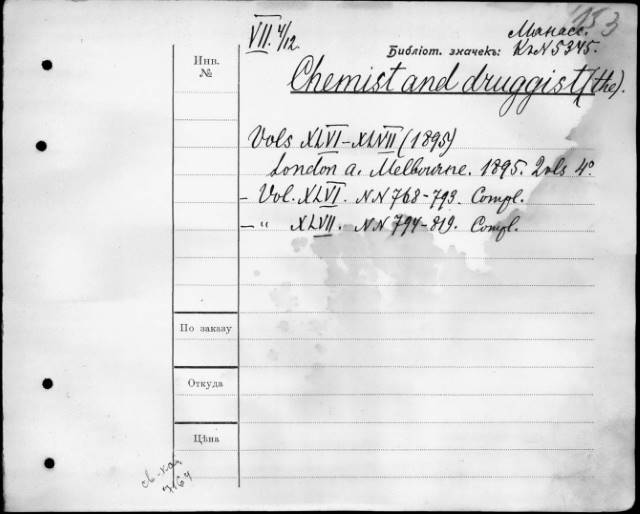 153
VII. 4/12.
Манасс.
Библіот. значекъ: K2N5345.
Инв.
№
Chemist and druggist (the).
Vols XLVI-XLVII (1895)
London a. Melbourne. 1895. 2 vls 4°.
- Vol. XLVI. NN 768-793. Compl.
- " XLVII. NN 794-819. Compl.
По заказу
Откуда
Цѣна
7164